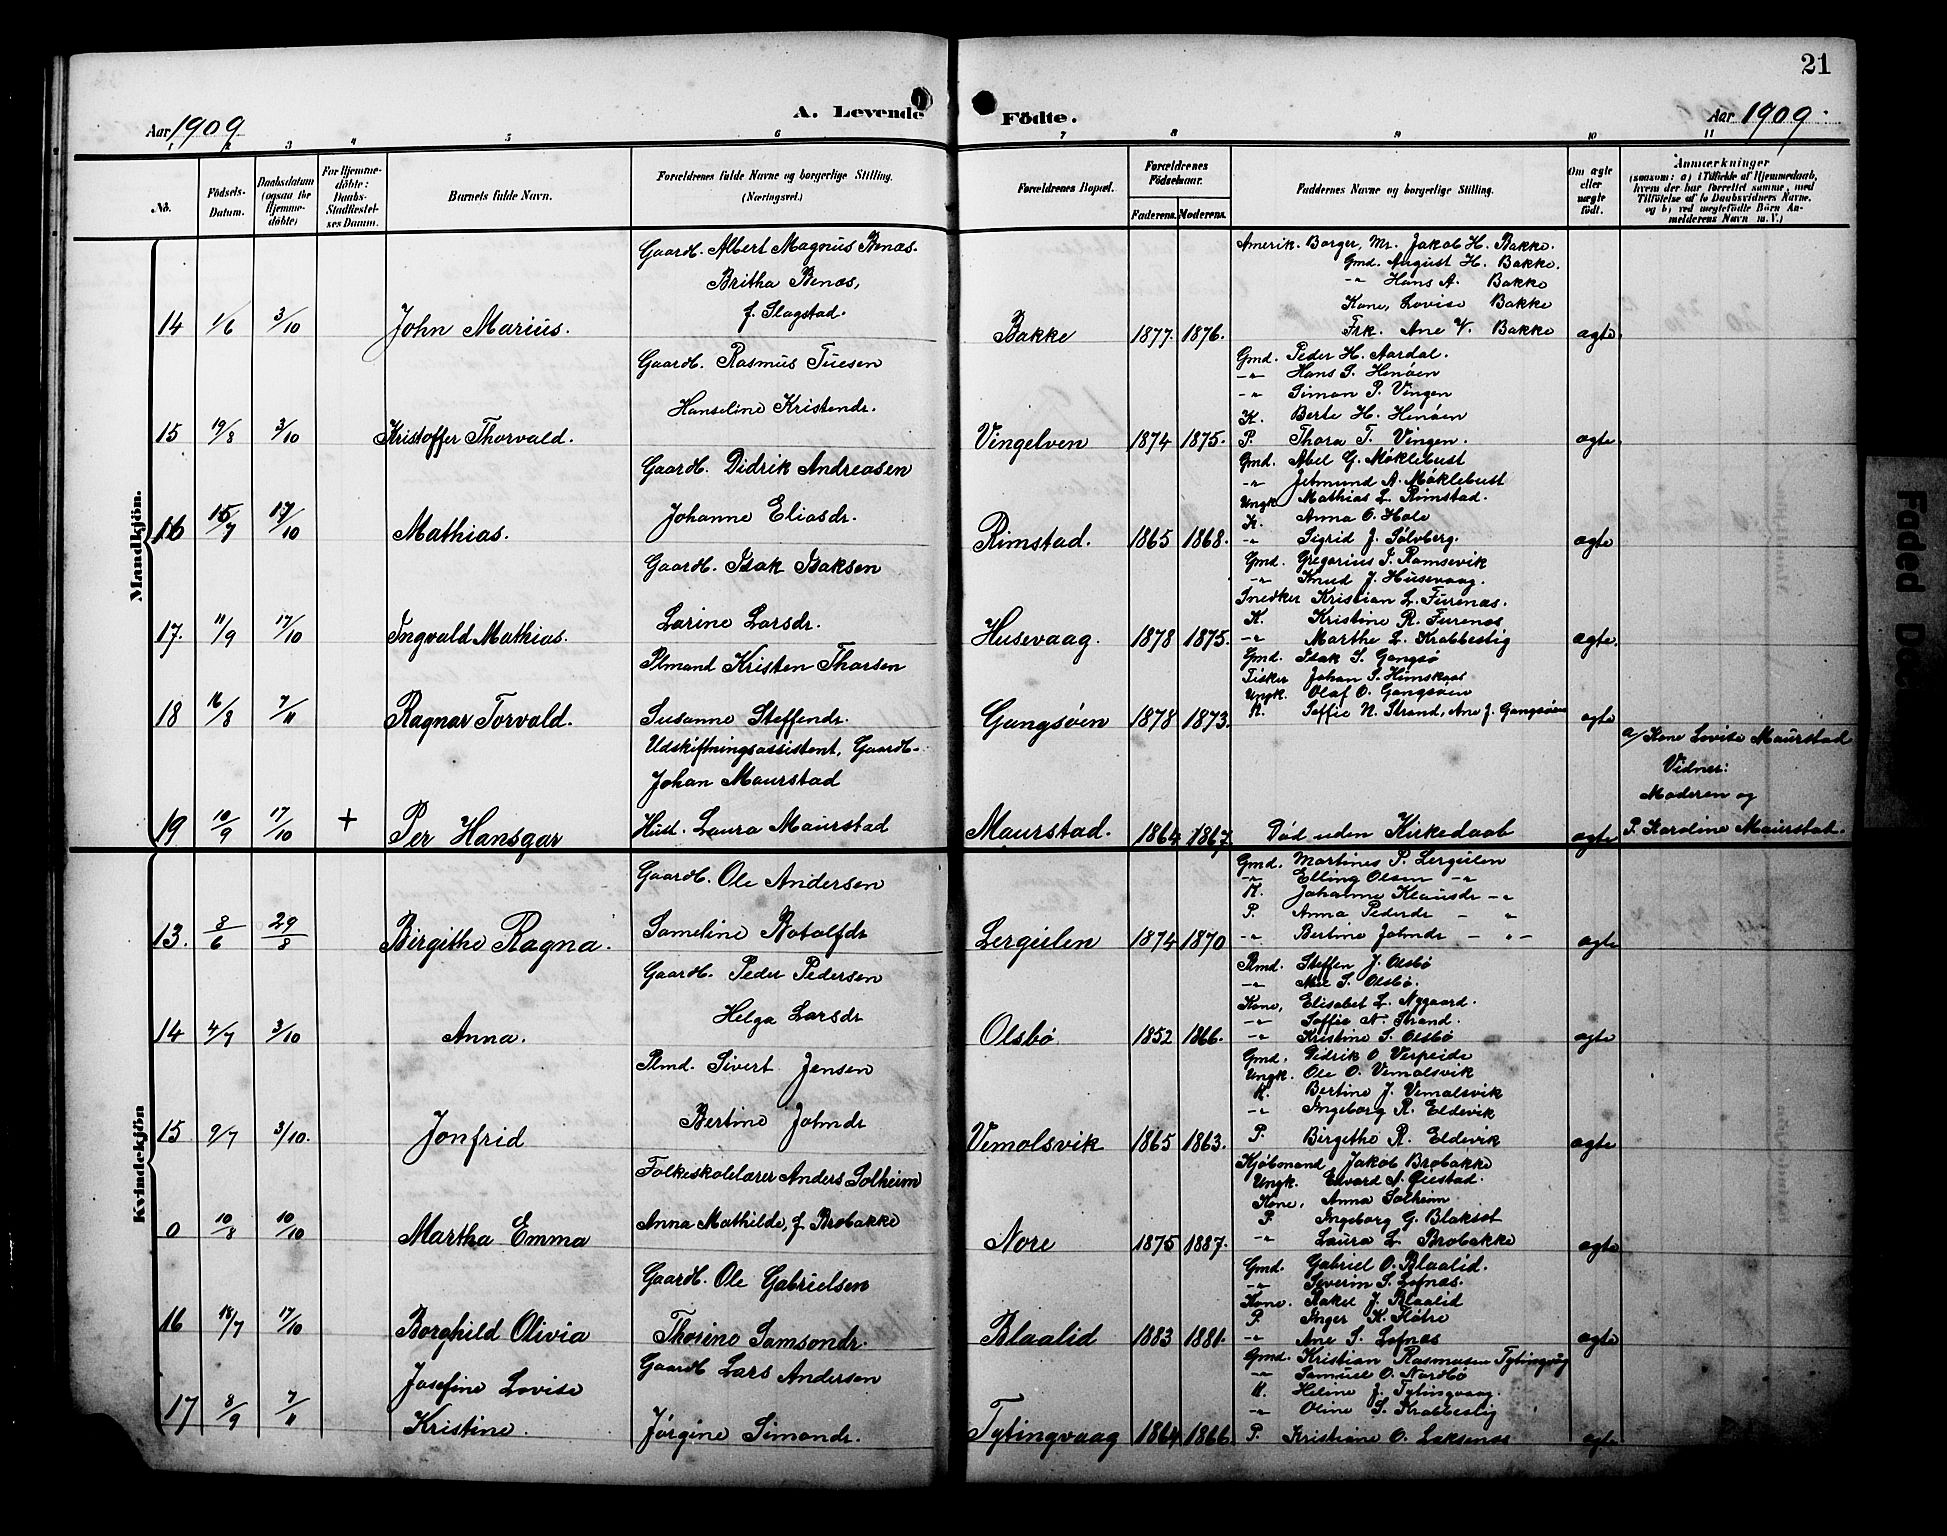 21
A. Levende Födte.
Aar 1909
Aar 1909.
1 2 3 4 5 6 7 8 9 10 11
No.
Födsels-Datum.
Daabsdatum (ogsaa for Hjemme-döbte)
For Hjemme-döbte: Daabs-Stadfæstel-ses Datum.
Barnets fulde Navn.
Forældrenes fulde Navne og borgerlige Stilling. (Næringsvei.)
Forældrenes Bopæl.
Forældrenes Födselsaar.
Faderens. Moderens.
Faddernes Navne og borgerlige Stilling.
Om ægte eller uægte födt.
Anmærkninger
(saasom: a) i Tilfælde af Hjemmedaab, hvem der har forrettet samme, med Tilföielse af to Daabsvidners Navne, og b) ved uægtefödte Börn An-melderens Navn m. V.)
Mandkjön.
14 1/6 3/10 John Marius.
Gaardb. Albert Magnus Benæs.
Britha Benæs,
f. Slagstad.
Bakke 1877. 1876.
Amerik. Borger, Mr. Jakob H. Bakke.
Gmd. August H. Bakke.
-"- Hans A. Bakke
Kone, Lovise Bakke
Frk. Ane V. Bakke
ægte.
15 19/8 3/10 Kristoffer Thorvald.
Gaardb. Rasmus Tuesen
Hanseline Kristendr.
Vingelven 1874 1875.
Gmd. Peder H. Aardal.
-"- Hans S. Henøen
-"- Simon P. Vingen
K. Berte H. Henøen
P. Thora T. Vingen.
ægte
16 15/7 17/10 Mathias.
Gaardb. Didrik Andreasen
Johanne Eliasdr.
Rimstad. 1865 1868.
Gmd. Abel G. Møklebust
-"- Jetmund A. Møklebust
Ungk Mathias L. Rimstad.
K. Anna O. Hole
-"- Sigrid J. Sølvberg.
ægte
17. 11/9 17/10 Ingvald Mathias.
Gaardb. Isak Isaksen
Larine Larsdr.
Husevaag. 1878 1875.
Gmd. Gregorius I. Ramsevik
-"- Knud J. Husevaag.
Snedker Kristian L. Furenæs.
K. Kristine R. Furenæs
-"- Marthe L. Krabbestig
ægte.
18 16/8 7/11 Ragnar Torvald.
Plmand Kristen Thorsen
Susanne Steffendr.
Gangsøen 1878 1873.
Gmd. Isak S. Gangsø
Fisker Johan S. Himskaas
Ungk. Olaf O. Gangsøen
K. Soffie N. Strand, Ane J. Gangsøen
ægte
19 10/9 17/10 + Per Hansgar
Udskiftningsassistent, Gaardb-
Johan Maurstad
Hust. Laura Maurstad
Maurstad. 1864 1867.
Død uden Kirkedaab
ægte
a/ Kone Lovise Maurstad
Vidner:
Moderen og
P. Karoline Maurstad.
Kvindekjön
13. 8/6 29/8 Birgithe Ragna.
Gaardb. Ole Andersen
Sameline Botolfdr
Lergulen 1874 1870
Gmd. Martines P. Lergulen
-"- Elling Olsen -"-
K. Johanne Klausdr -"-
P. Anna Pederdr - "
-"- Bertine Johndr - "-
ægte
14 4/7 3/10 Anna.
Gaardb. Peder Pedersen
Helga Larsdr
Olsbø 1852 1866.
Plmd. Steffen J. Olsbø
-"- Nils S. Olsbø.
Kone, Elisabet L. Nygaard.
-"- Soffie N. Strand.
-"- Kristine S. Olsbø
ægte
15 9/7 3/10. Jonfrid
Plmd. Sivert Jensen
Bertine Johndr
Vemolsvik 1865 1863.
Gmd. Didrik O. Verpeide
Ungk. Ole O. Vemolsvik
K. Bertine J. Vemolsvik
-"- Ingeborg R. Eldevik
P. Birgithe R. Eldevik
ægte
0 10/8 10/10 Martha Emma
Folkeskolelærer Anders Solheim
Anna Mathilde, f. Brobakke
Nore 1875 1887.
Kjøbmand Jakob Brobakke
Ungk. Edvard S. Øiestad.
Kone, Anna Solheim
P. Ingeborg G. Blaksat
-"- Laura L. Brobakke
ægte
16 18/7 17/10 Borghild Olivia
Gaardb. Ole Gabrielsen
Thorine Samsondr.
Blaalid 1883 1881.
Gmd. Gabriel O. Blaalid.
-"- Severin S. Lofnæs.
Kone. Rakel J. Blaalid
P. Inger K. Fløtre
-"- Ane S. Lofnæs
ægte
17 3/9 7/11 Josefine Lovise
Kristine.
Gaardb Lars Andersen
Jørgine Simondr.
Tytingvaag 1864 1866
Gmd. Kristian Rasmusen Tytingvåg
-"- Samuel O. Nordbø
K. Heline J. Tytingvaag.
-"- Oline S. Krabbestig
P. Kristiane O. Laksenæs
ægte
Faded Do